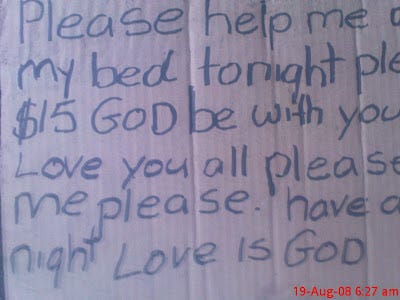 Please help me
my bed tonight ple
$15 GOD be with you
Love you all please
me please. have a
night Love is GOD
19-Aug-08 6:27 am